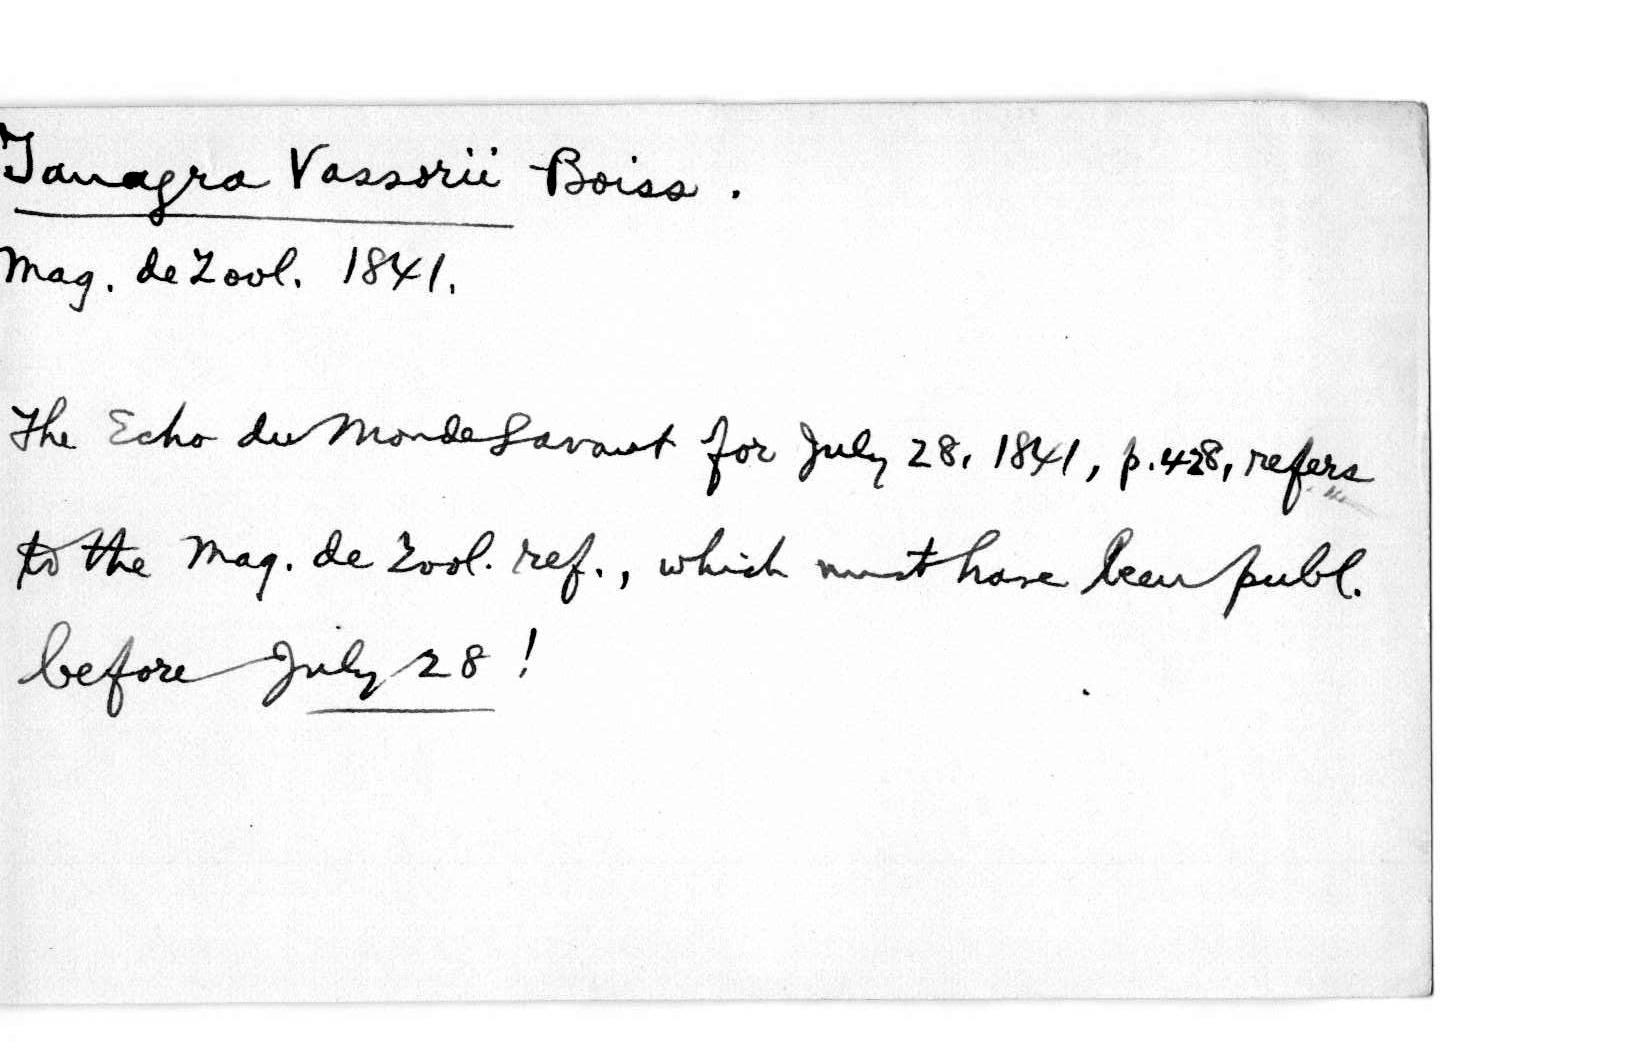 Tanagra Vassorii Boiss.
Mag. de Zool. 1841.
The Echo du Monde Savant for July 28, 1841, p. 428, refers
to the Mag. de Zool. ref., which must have been publ.
before July 28!